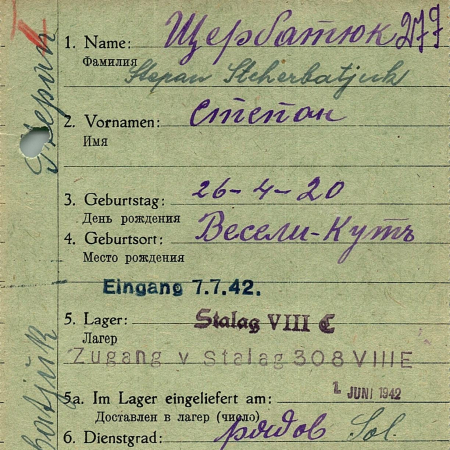 1. Name: Щербатюк 277
Фамилия
Stepan Stcherbatjuk
2. Vornamen: Степан
Имя
3. Geburtstag: 26-4-20
День рождения
4. Geburtsort: Весели-Кутъ
Место рождения
Eingang 7.7.42.
5. Lager: Stalag VIII C
Лагер
Zugang v Stalag 308 VIII E
1. JUNI 1942
5a. Im Lager eingeliefert am:
Доставлен в лагер (число)
6. Dienstgrad: рядов Sol.